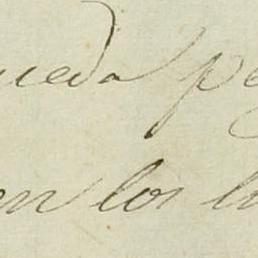 ueda p
en los lo